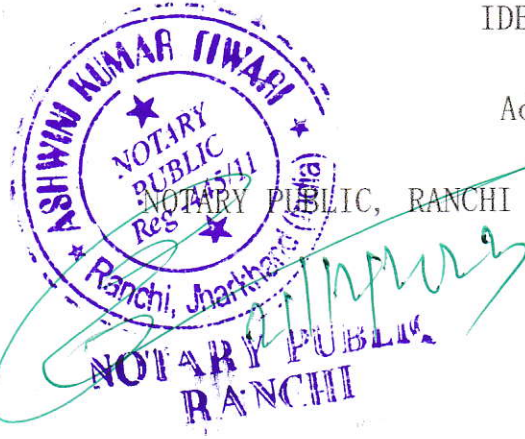 IDE
Ad
ASHWINI KUMAR TIWARI
NOTARY
PUBLIC
Ranchi, Jharkhand (India)
NOTARY PUBLIC, RANCHI
NOTARY PUBLIC
RANCHI